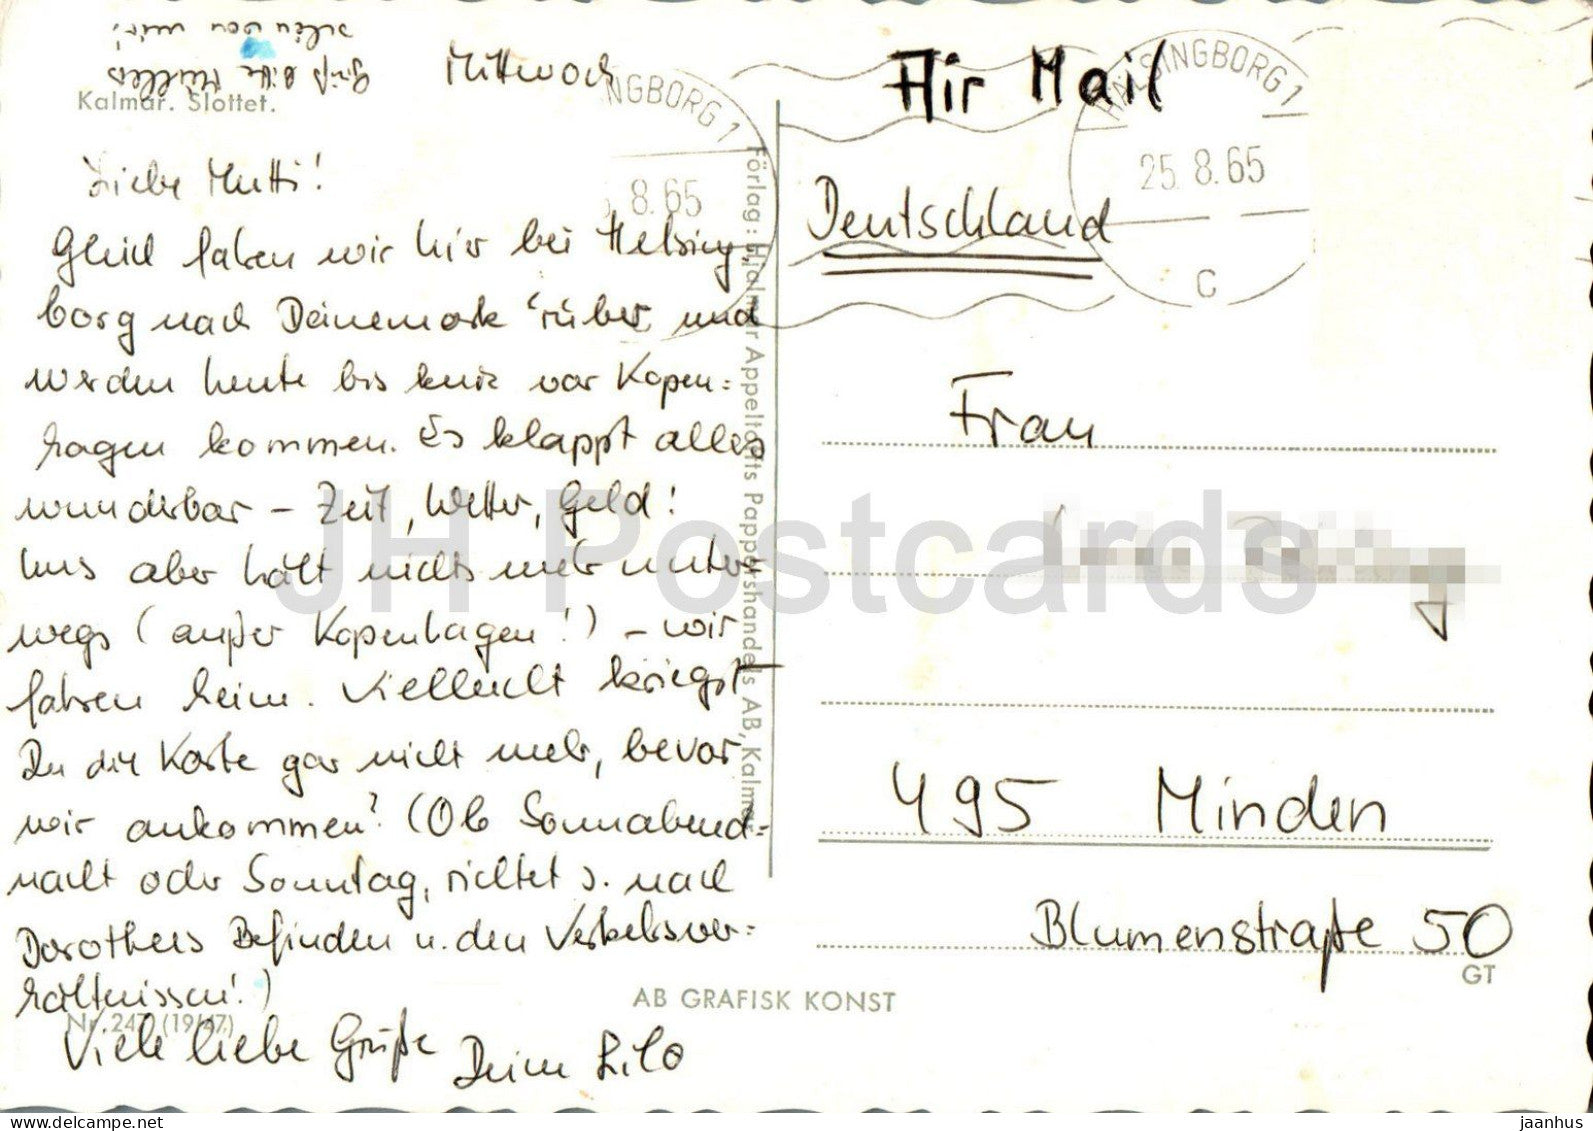 Grüß bitte Müllers
schön von mir!
Mittwoch
Kalmar. Slottet.
Liebe Mutti!
Gleich fahren wir hier bei Helsing-
borg nach Dänemark 'rüber und
werden heute bis kurz vor Kopen=
hagen kommen. Es klappt alles
wunderbar – Zeit, Wetter, Geld!
Uns aber hält nichts mehr unter
wegs (außer Kopenhagen!) – wir
fahren heim. Vielleicht kriegst
Du die Karte gar nicht mehr, bevor
wir ankommen? (Ob Sonnabend=
nacht oder Sonntag, richtet s. nach
Dorothees Befinden u. den Verkehrsver=
hältnissen!)
Viele liebe Grüße Deine Lilo
Nr. 247 (19/47)
AB GRAFISK KONST
Förlag: Hjalmar Appeltoffts Pappershandels AB, Kalmar
NGBORG 1
8.65
Air Mail
HÄLSINGBORG 1
25.8.65
C
Deutschland
Frau
495 Minden
Blumenstraße 50
GT
JH Postcards
www.delcampe.net
jaanhus